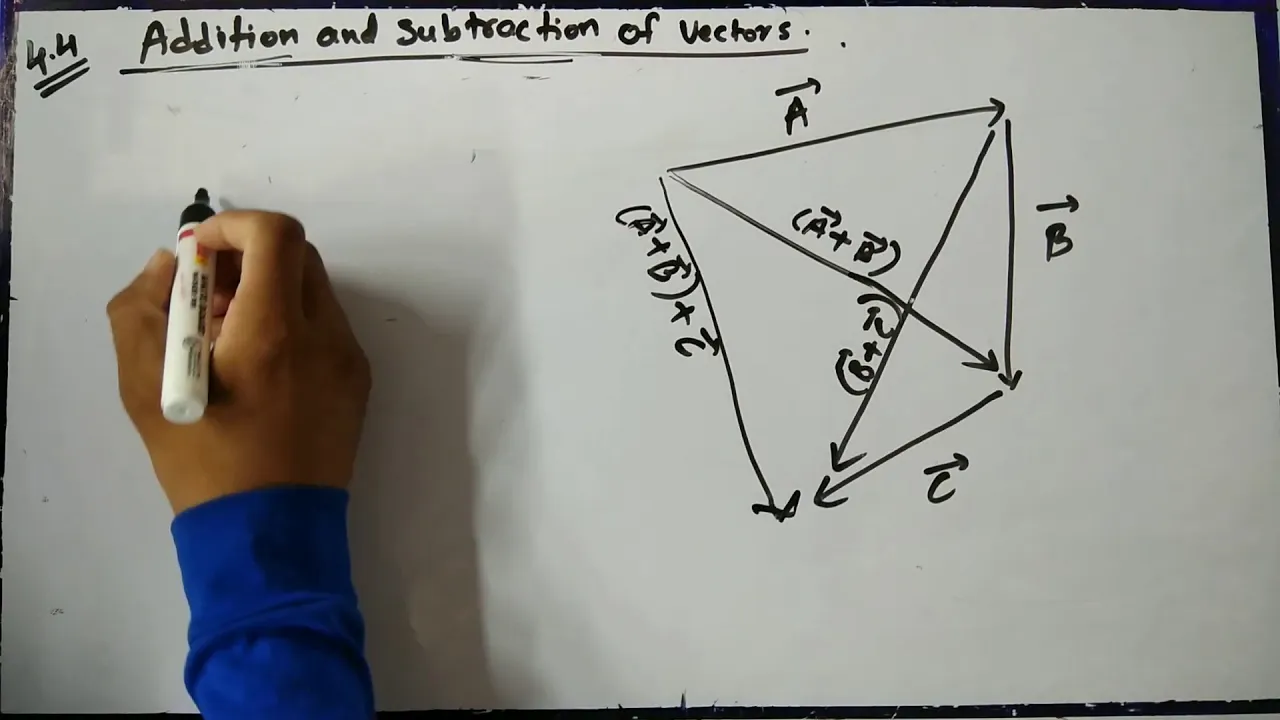 4.4 Addition and subtraction of vectors.
A⃗
(A⃗+B⃗)
B⃗
(A⃗+B⃗)+C⃗
(B⃗+C⃗)
C⃗